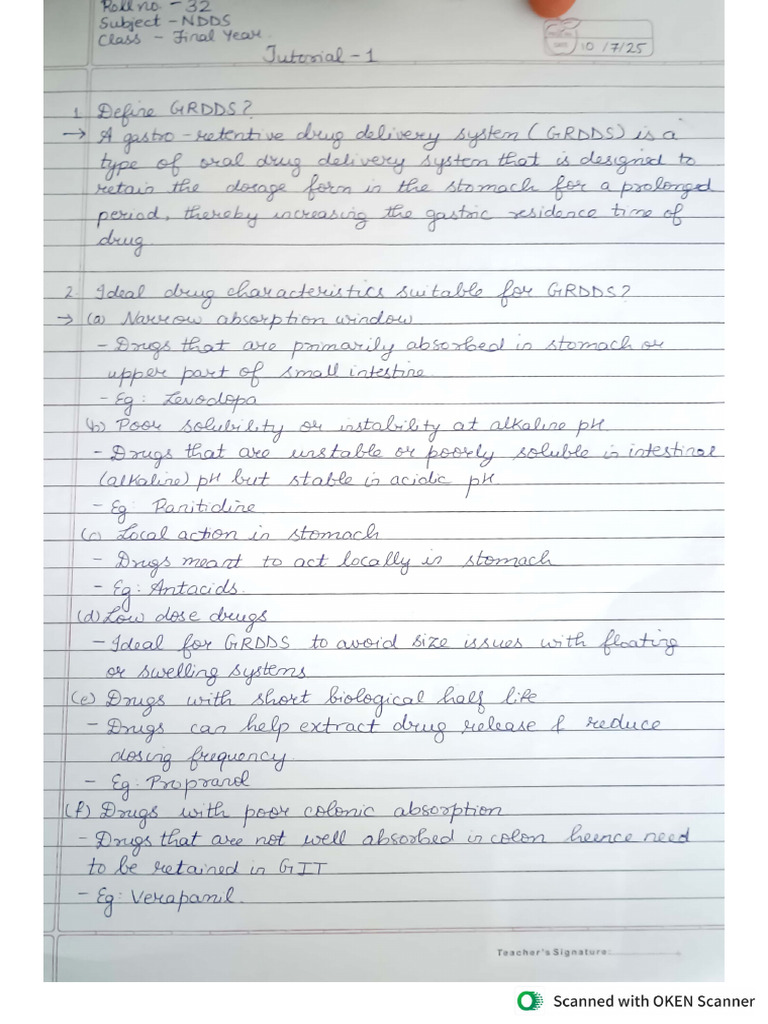 Roll no. - 32
Subject - NDDS
Class - Final Year
DATE 10/7/25
Tutorial - 1
1. Define GRDDS?
→ A gastro-retentive drug delivery system (GRDDS) is a
type of oral drug delivery system that is designed to
retain the dosage form in the stomach for a prolonged
period, thereby increasing the gastric residence time of
drug
2. Ideal drug characteristics suitable for GRDDS?
→ (a) Narrow absorption window
- Drugs that are primarily absorbed in stomach or
upper part of small intestine
- Eg: Levodopa
(b) Poor solubility or instability at alkaline pH
- Drugs that are unstable or poorly soluble in intestinal
(alkaline) pH but stable in acidic pH
- Eg: Ranitidine
(c) Local action in stomach
- Drugs meant to act locally in stomach
- Eg: Antacids.
(d) Low dose drugs
- Ideal for GRDDS to avoid size issues with floating
or swelling systems
(e) Drugs with short biological half life
- Drugs can help extract drug release & reduce
dosing frequency
- Eg: Propranol
(f) Drugs with poor colonic absorption
- Drugs that are not well absorbed in colon heence need
to be retained in GIT
- Eg: Verapamil.
Teacher's Signature:
Scanned with OKEN Scanner